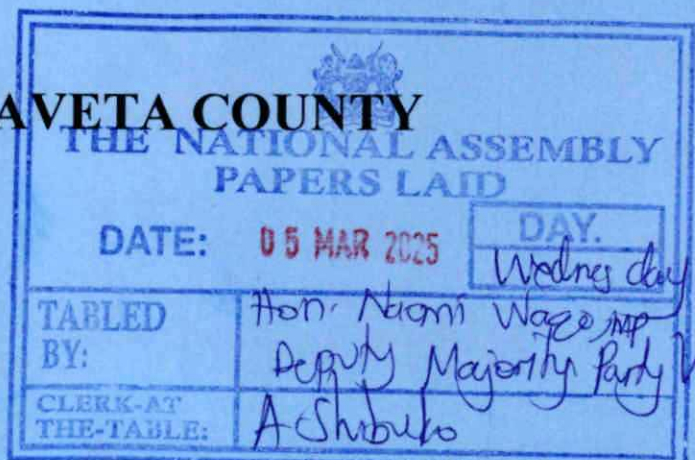 AVETA COUNTY
THE NATIONAL ASSEMBLY
PAPERS LAID
DATE: 05 MAR 2025
DAY.
Wednesday
TABLED BY:
Hon. Naomi Waqo, MP
Deputy Majority Party
CLERK-AT THE-TABLE:
A. Shibuko